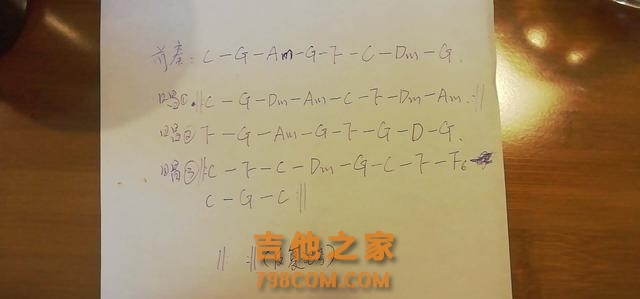 前奏: C-G-Am-G-F-C-Dm-G.
唱①.||:C-G-Dm-Am-C-F-Dm-Am.:||
唱②F-G-Am-G-F-G-D-G.
唱③||:C-F-C-Dm-G-C-F-F6
C-G-C:||
吉他之家
||: :||(反复记号)
798COM.COM